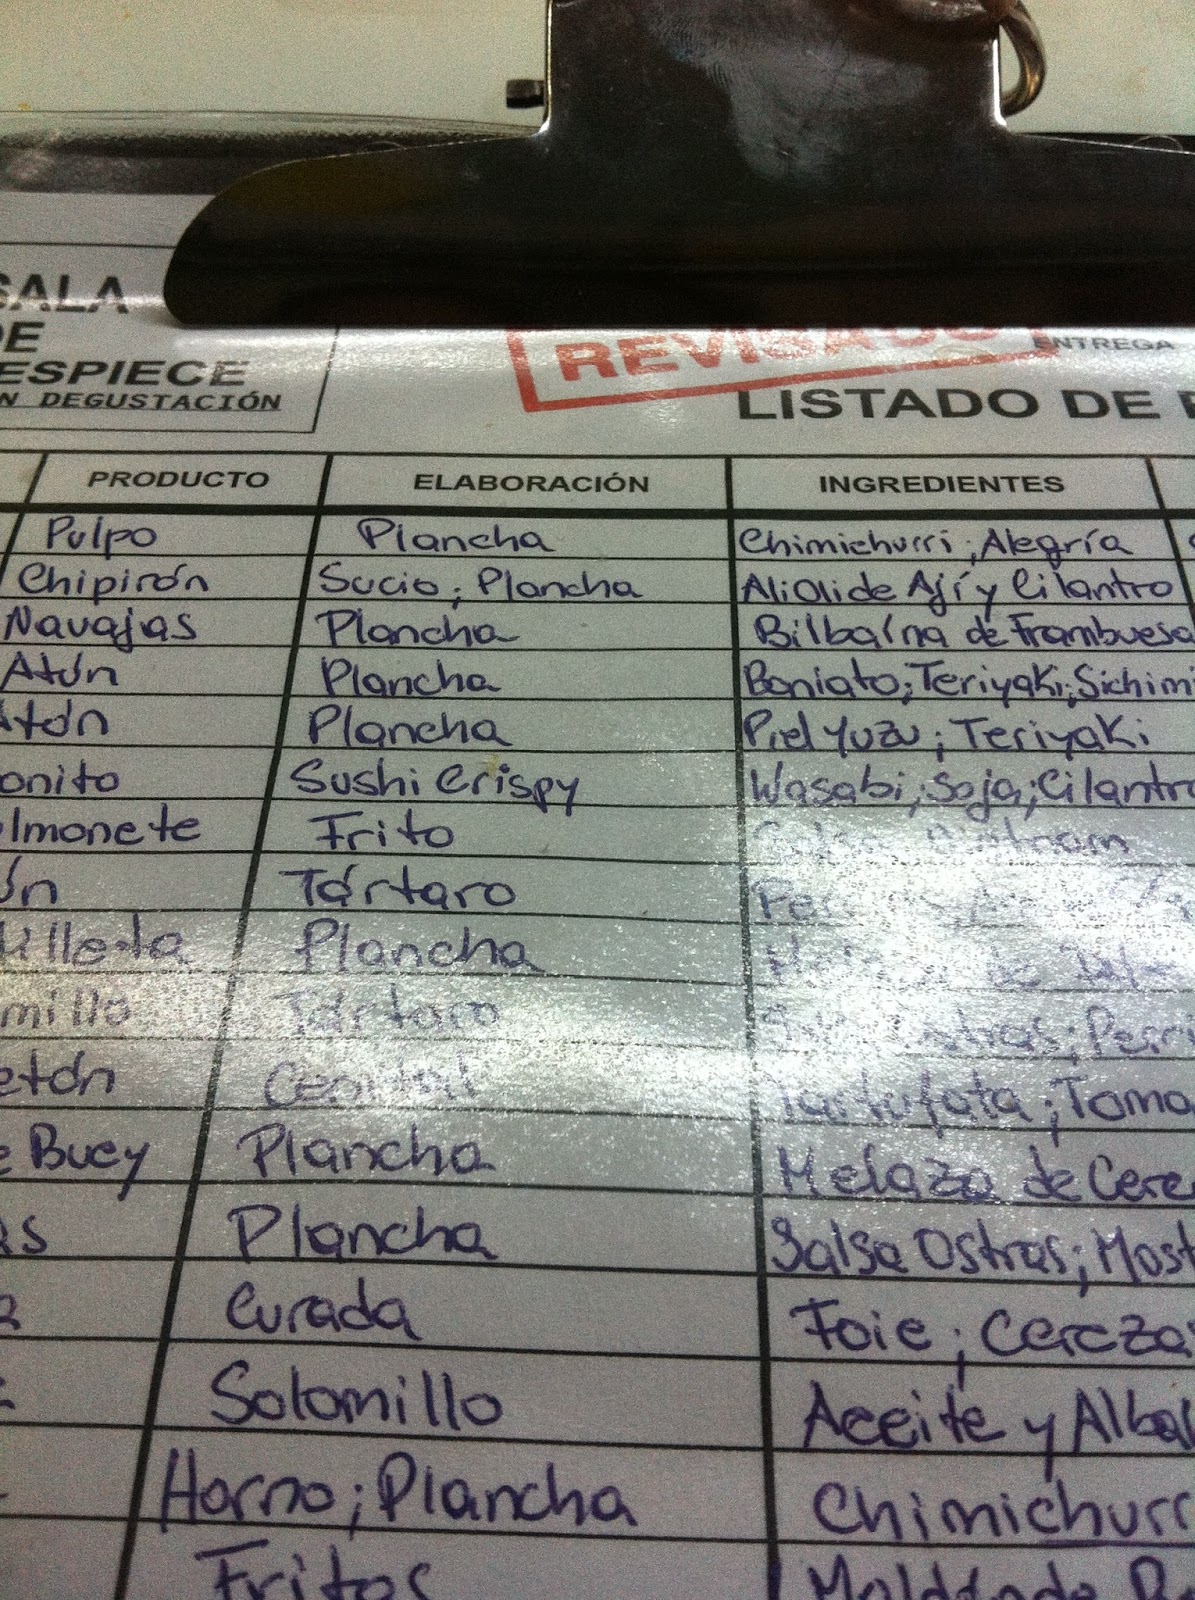 SALA
DE
ESPIECE
N DEGUSTACIÓN
REVISADO
ENTREGA
LISTADO DE
PRODUCTO ELABORACIÓN INGREDIENTES
Pulpo Plancha Chimichurri; Alegría
Chipirón Sucio; Plancha Alioli de Ají y Cilantro
Navajas Plancha Bilbaína de Frambuesa
Atún Plancha Boniato; Teriyaki; Sichimi
Atún Plancha Piel Yuzu; Teriyaki
onito Sushi Crispy Wasabi; Soja; Cilantro
lmonete Frito
ún Tártaro
illeta Plancha de
millo Tártaro Ostras; Perri
etón Tartufata; Toma
e Buey Plancha Melaza de Cere
as Plancha Salsa Ostras; Most
a Curada Foie; Cereza
Solomillo Aceite y Alba
Horno; Plancha Chimichurr
Fritos